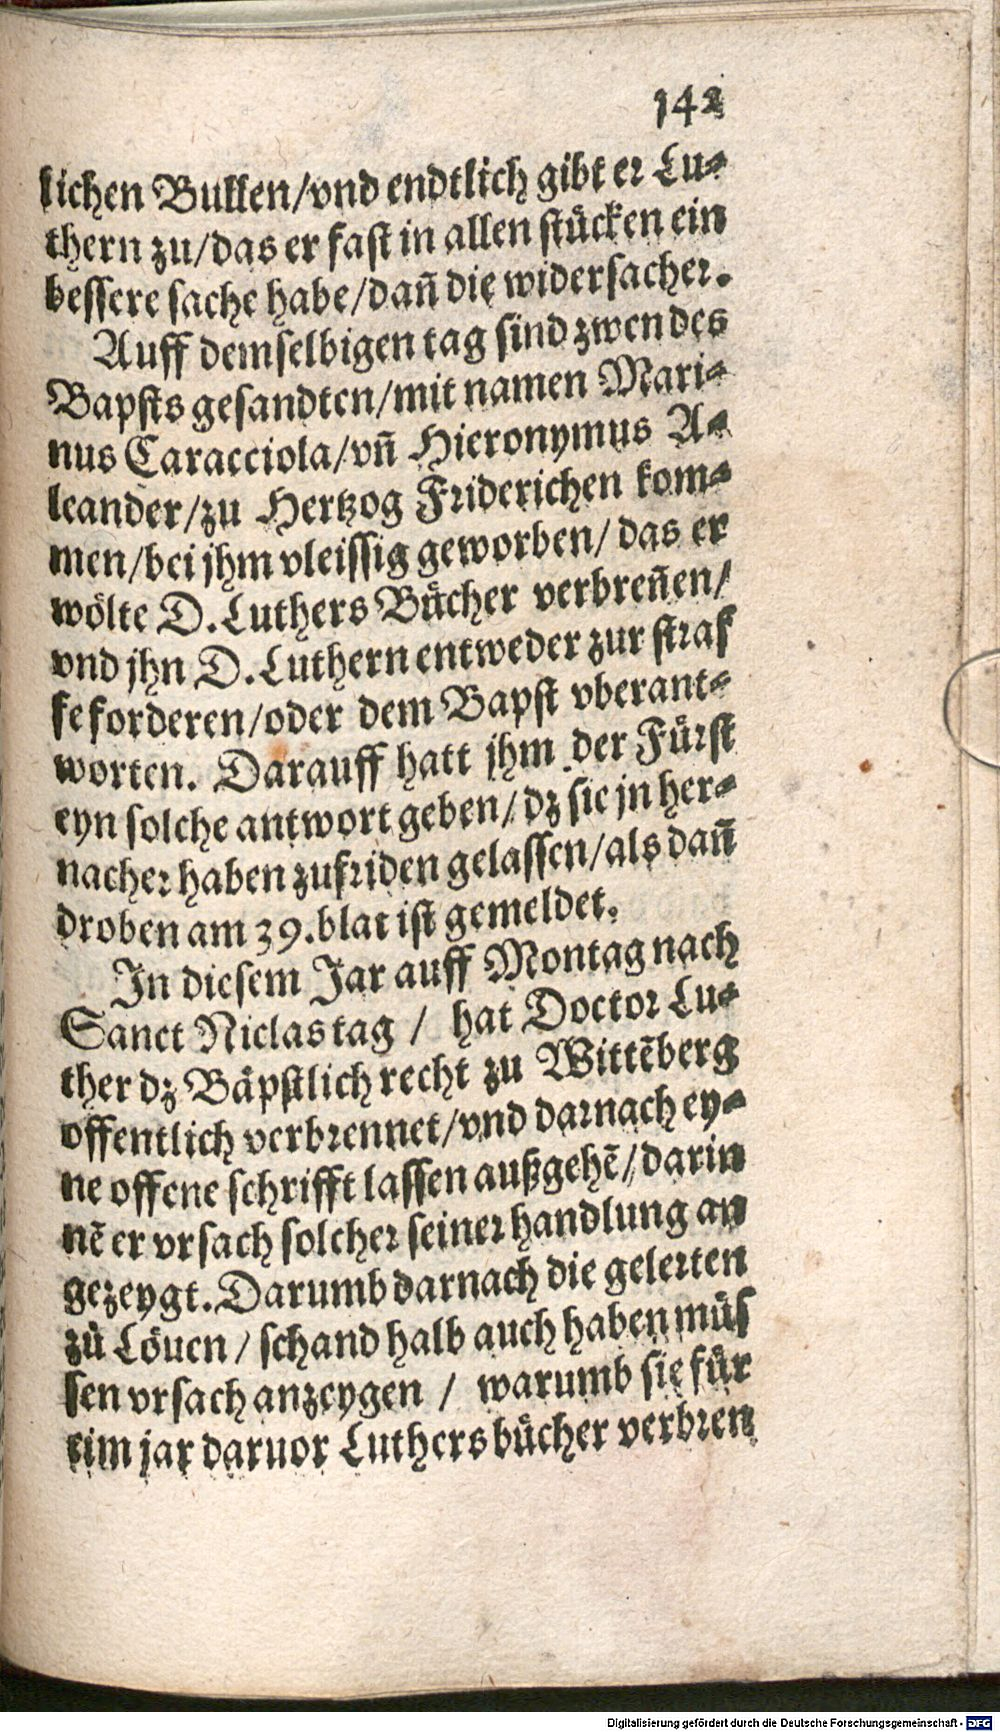 142
lichen Bullen/vnd endtlich gibt er Lu⸗
thern zu/das er fast in allen stücken ein
bessere sache habe/dañ die widersacher.
Auff demselbigen tag sind zwen des
Bapsts gesandten/mit namen Mari⸗
nus Caracciola/vñ Hieronymus A⸗
leander/zu Hertzog Friderichen kom⸗
men/bei jhm vleissig geworben/das er
wölte D.Luthers Bücher verbreñen/
vnd jhn D.Luthern entweder zur straf
fe forderen/oder dem Bapst vberant⸗
worten. Darauff hatt jhm der Fürst
eyn solche antwort geben/dz sie jn her⸗
nacher haben zufriden gelassen/als dañ
droben am 39.blat ist gemeldet.
In diesem Jar auff Montag nach
Sanct Niclas tag / hat Doctor Lu⸗
ther dz Bäpstlich recht zu Wittẽberg
offentlich verbrennet/vnd darnach ey⸗
ne offene schrifft lassen außgehẽ/darin
nẽ er vrsach solcher seiner handlung an
gezeygt.Darumb darnach die gelerten
zů Löuen / schand halb auch haben můs
sen vrsach anzeygen / warumb sie für
eim jar daruor Luthers bücher verbren
Digitalisierung gefördert durch die Deutsche Forschungsgemeinschaft - DFG